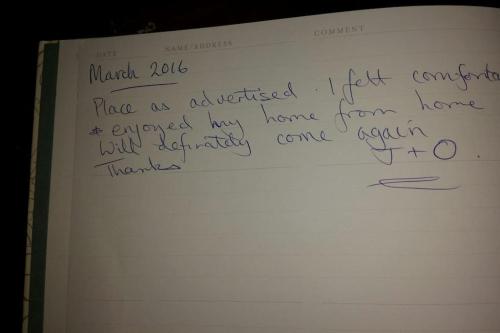 DATE NAME/ADDRESS COMMENT
March 2016
Place as advertised. I felt comforta
& enjoyed my home from home
Will definately come again
Thanks J + O.